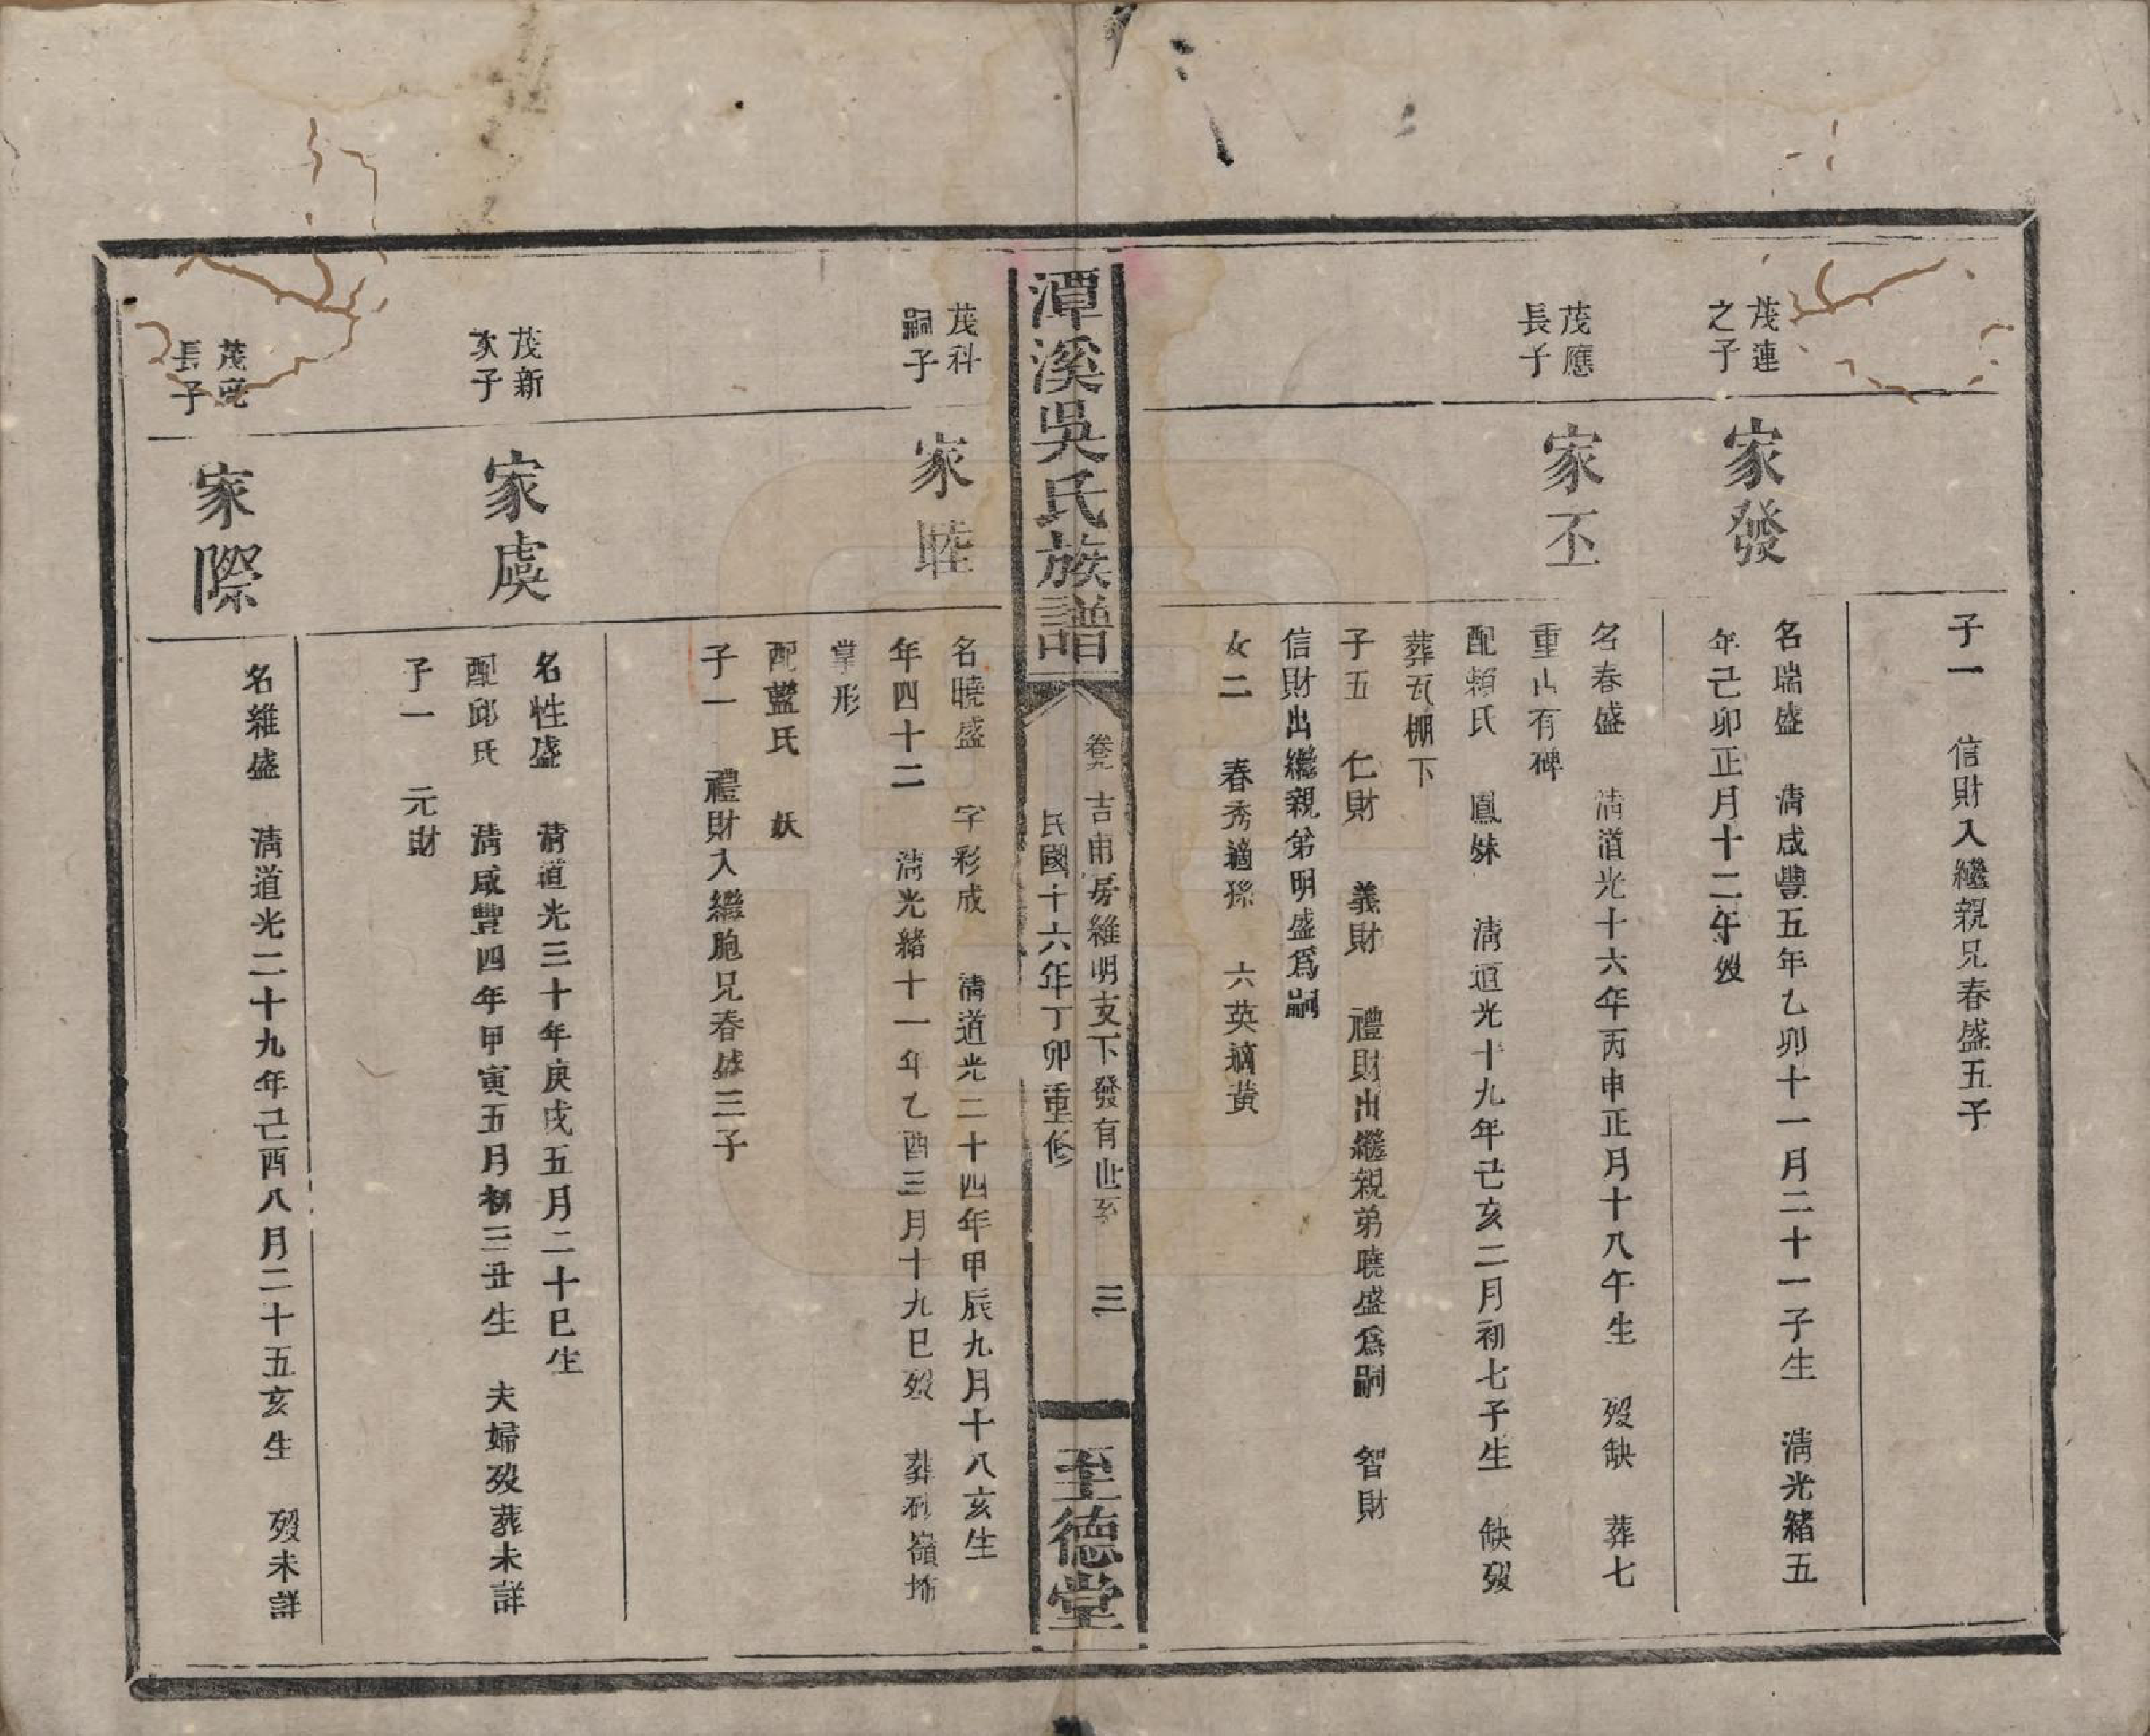 子一 信財入繼親兄春盛五子
茂連
之子
家發
名瑞盛 清咸豐五年乙卯十一月二十一子生 清光緒五
年己卯正月十二午歿
茂應
長子
家丕
名春盛 清道光十六年丙申正月十八午生 歿缺 葬七
重山有碑
配賴氏 鳳妹 清道光十九年己亥二月初七子生 缺歿
葬瓦棚下
子五 仁財 義財 禮財出繼親弟曉盛爲嗣 智財
信財出繼親弟明盛爲嗣
女二 春秀適孫 六英適黃
潭溪吳氏族譜
卷九 吉甫房維明支下發有世系 三
民國十六年丁卯重修
至德堂
茂科
嗣子
家睦
名曉盛 字彩成 清道光二十四年甲辰九月十八亥生
年四十二 清光緒十一年乙酉三月十九巳歿 葬 嶺
掌形
配藍氏 妖
子一 禮財入繼胞兄春盛三子
茂新
次子
家虞
名性盛 清道光三十年庚戌五月二十巳生
配邱氏 清咸豐四年甲寅五月初三丑生 夫婦歿葬未詳
子一 元財
茂
長子
家際
名維盛 清道光二十九年己酉八月二十五亥生 歿未詳